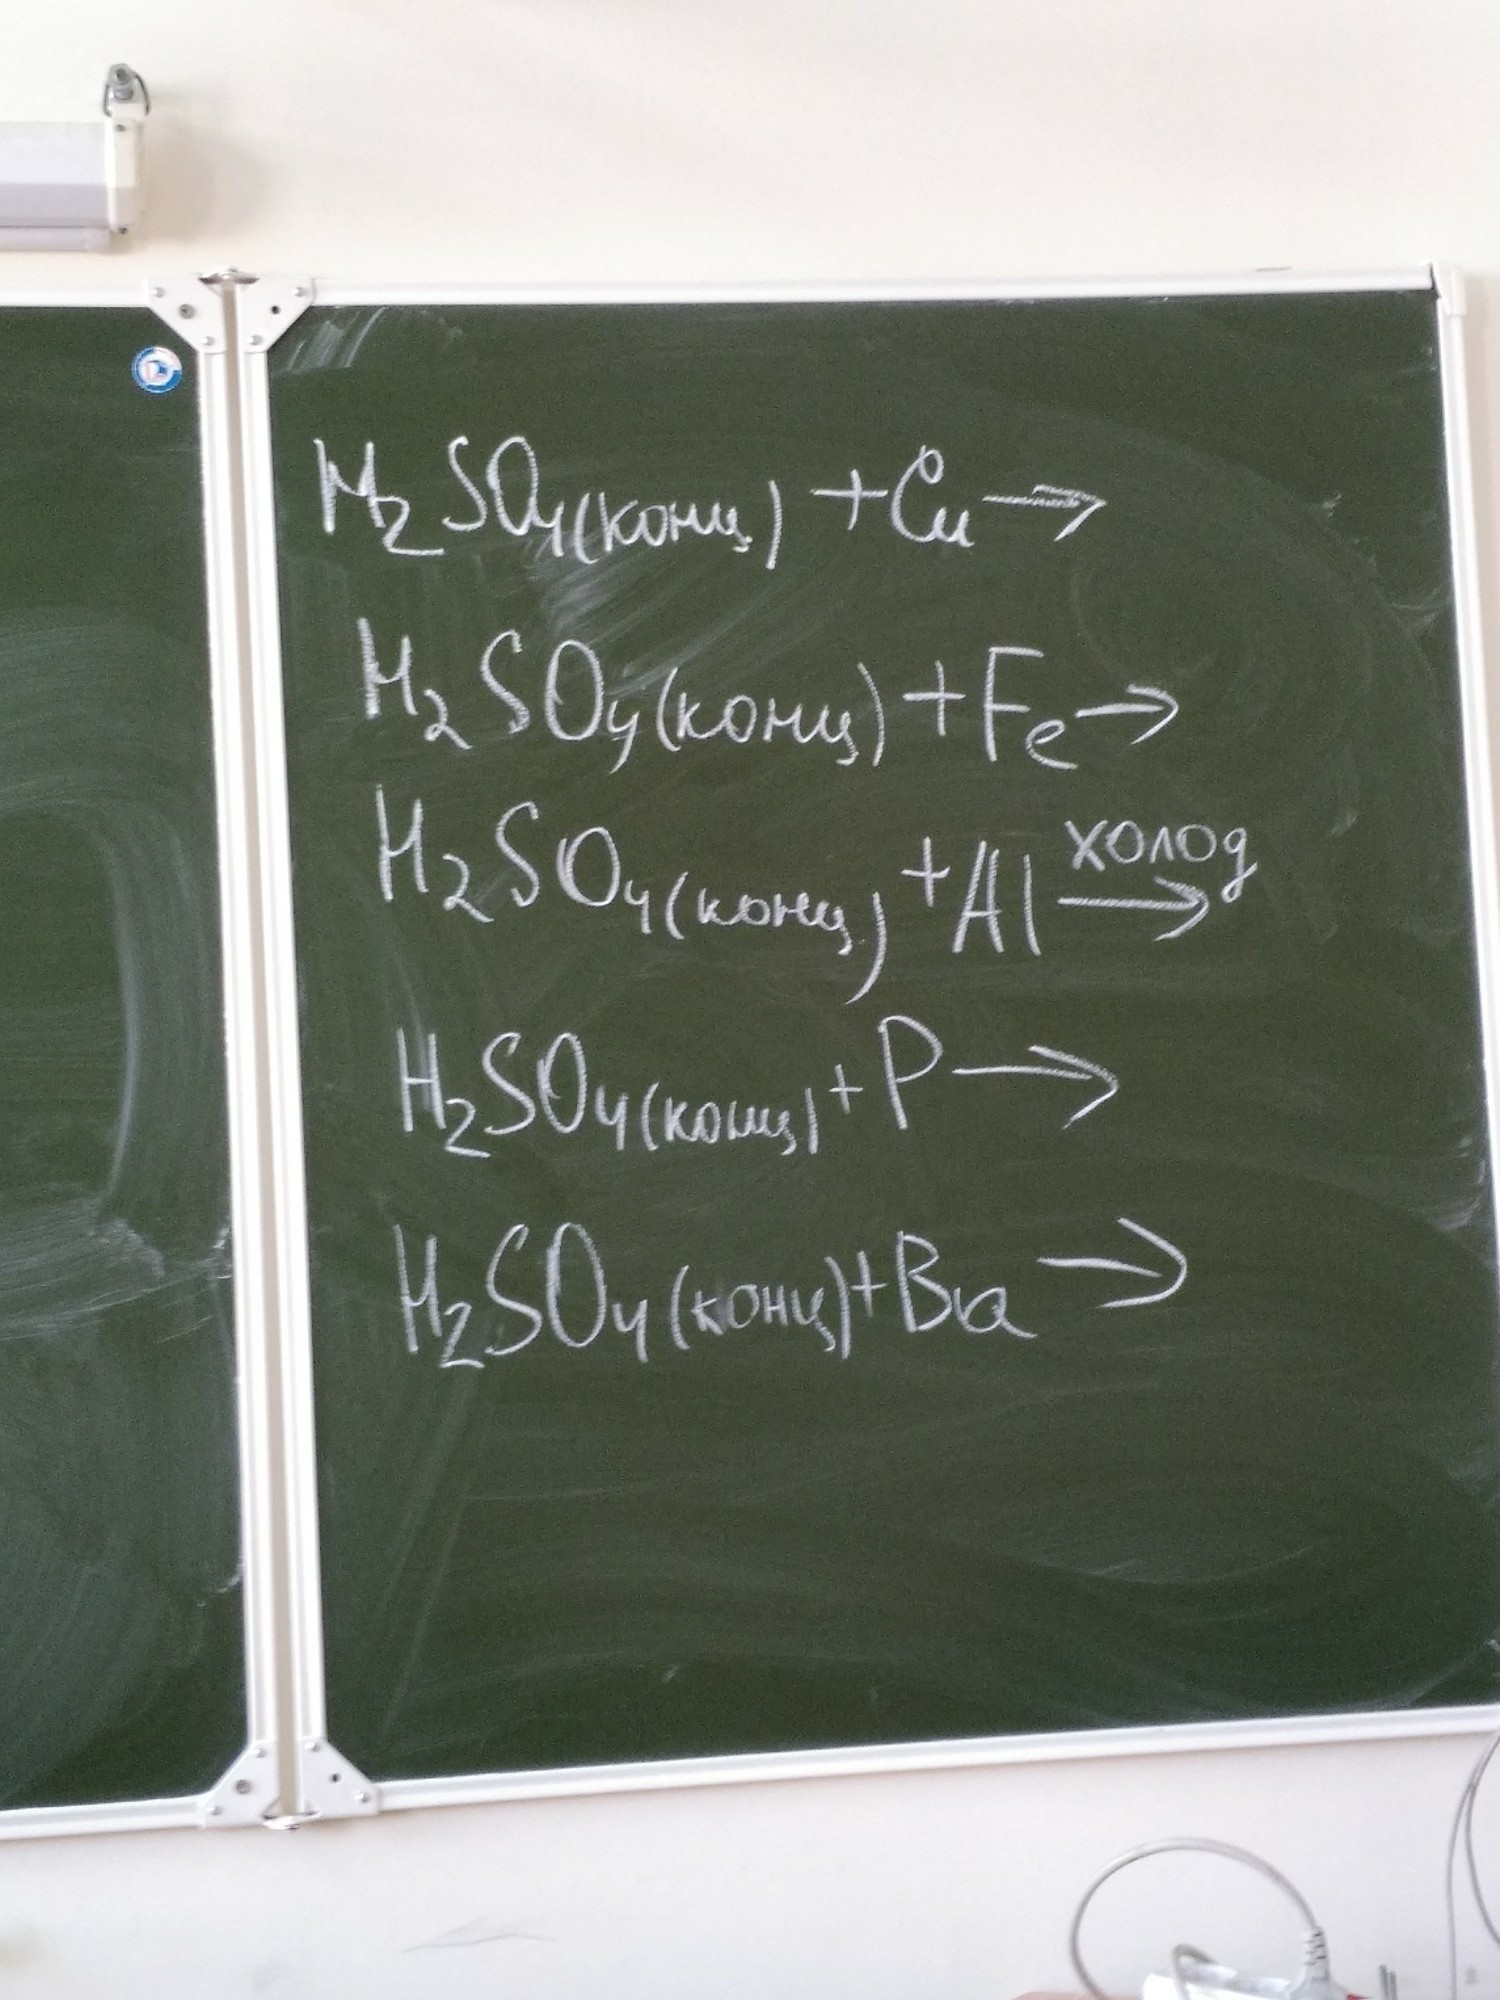 H₂SO₄(конц) + Cu →
H₂SO₄(конц) + Fe →
H₂SO₄(конц) + Al →холод
H₂SO₄(конц) + P →
H₂SO₄(конц) + Ba →